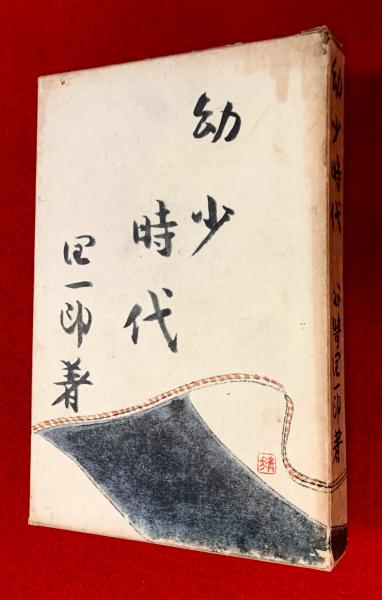 幼少
時代
潤一郎著
幼少時代 谷崎潤一郎著